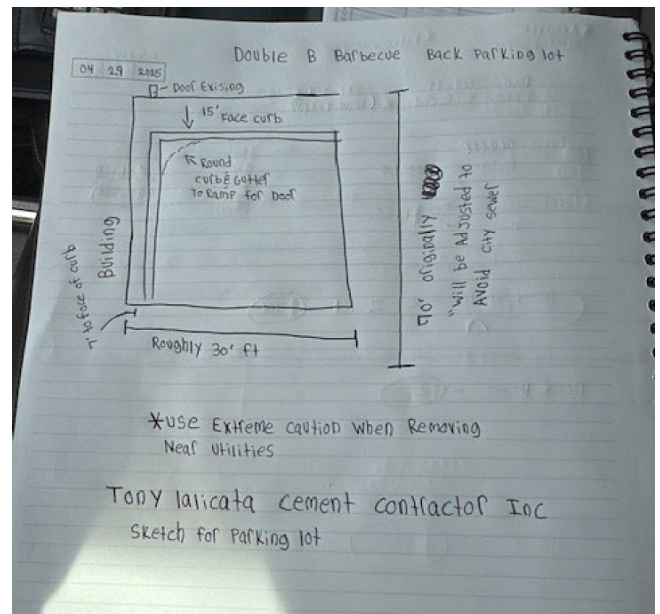 Double B Barbecue Back Parking lot
04 29 2025
Door Exising
15' Face curb
Round
curb & Gutter
To Ramp for Door
Building
to face of curb
70' originally
"will be Adjusted to
Avoid city sewer
Roughly 30' ft
*use Extreme caution when Removing
Near utilities
Tony lalicata cement contractor Inc
Sketch for Parking lot